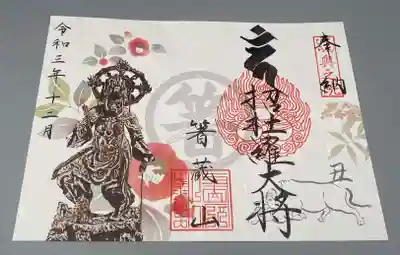 奉納
丑
招杜羅大将
箸
箸蔵山
令和三年十二月